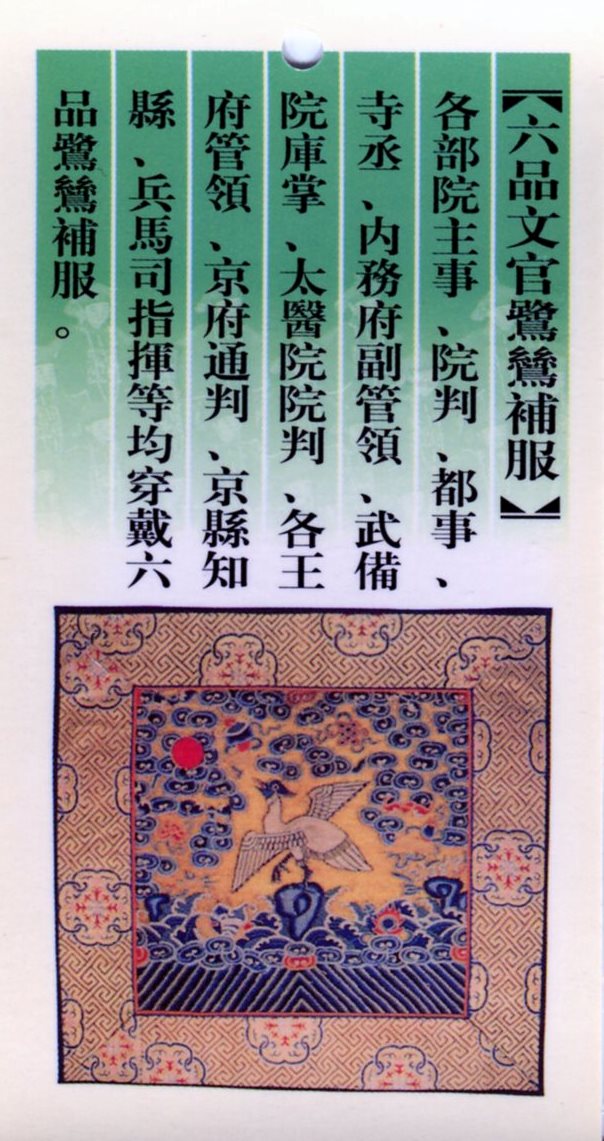 【六品文官鷺鷥補服】
各部院主事、院判、都事、
寺丞、内務府副管領、武備
院庫掌、太醫院院判、各王
府管領、京府通判、京縣知
縣、兵馬司指揮等均穿戴六
品鷺鷥補服。